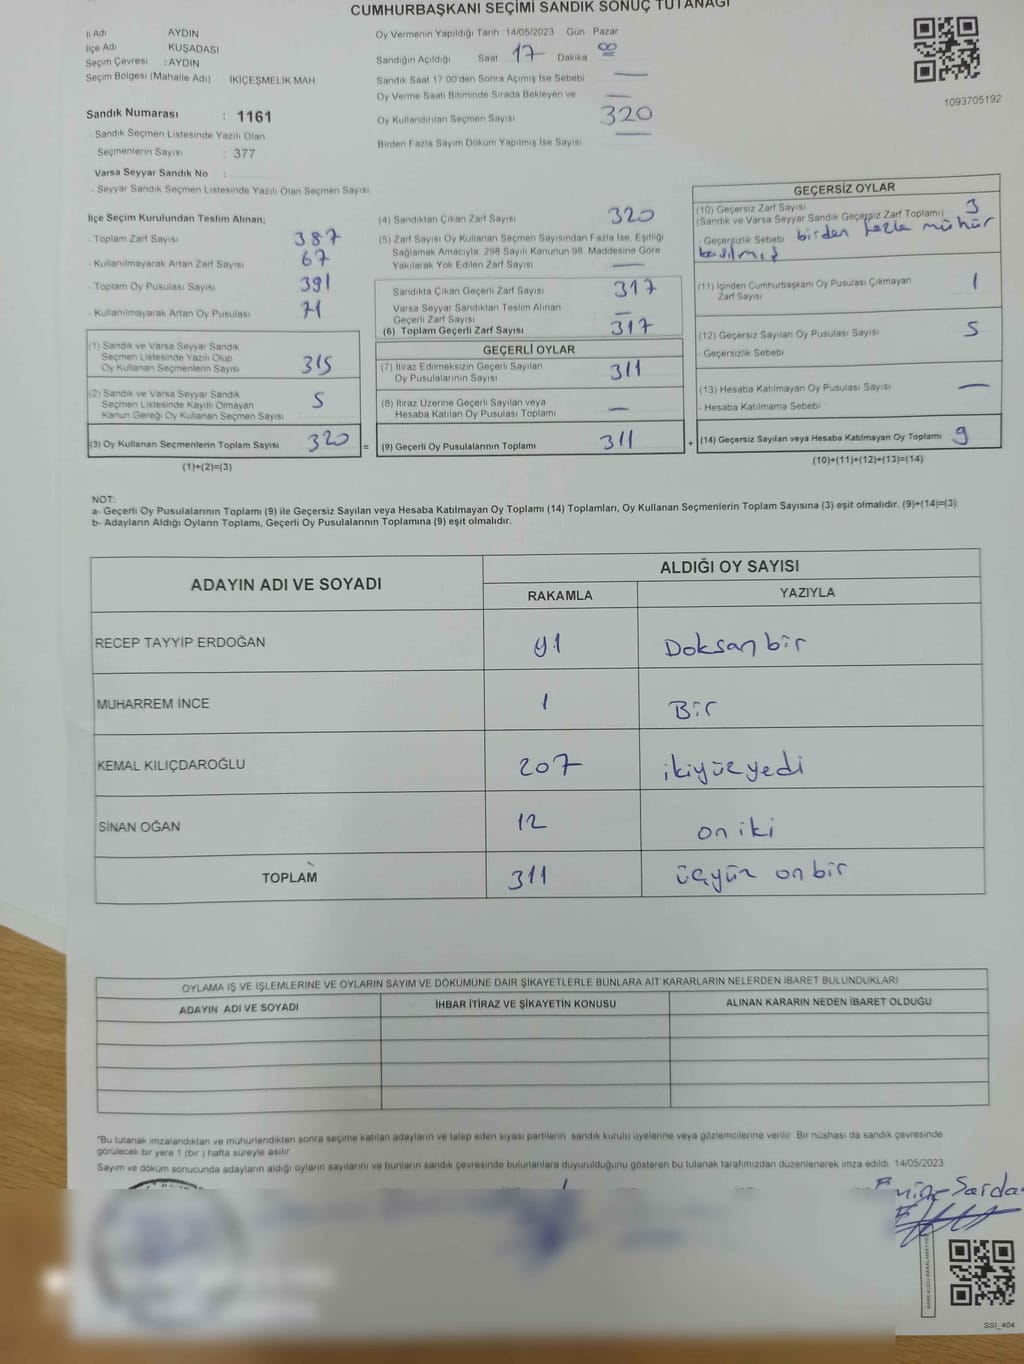 CUMHURBAŞKANI SEÇİMİ SANDIK SONUÇ TUTANAĞI
İl Adı AYDIN
İlçe Adı KUŞADASI
Seçim Çevresi : AYDIN
Seçim Bölgesi (Mahalle Adı) İKİÇEŞMELİK MAH.
Sandık Numarası : 1161
- Sandık Seçmen Listesinde Yazılı Olan
Seçmenlerin Sayısı : 377
Varsa Seyyar Sandık No :
- Seyyar Sandık Seçmen Listesinde Yazılı Olan Seçmen Sayısı
Oy Vermenin Yapıldığı Tarih 14/05/2023 Gün Pazar
Sandığın Açıldığı Saat 17 Dakika
Sandık Saat 17:00'den Sonra Açımış İse Sebebi —
Oy Verme Saati Bitiminde Sırada Bekleyen ve —
Oy Kullandırılan Seçmen Sayısı 320
Birden Fazla Sayım Döküm Yapılmış İse Sayısı —
1093705192
İlçe Seçim Kurulundan Teslim Alınan;
- Toplam Zarf Sayısı 387
- Kullanılmayarak Artan Zarf Sayısı 67
- Toplam Oy Pusulası Sayısı 391
- Kullanılmayarak Artan Oy Pusulası 71
(1) Sandık ve Varsa Seyyar Sandık
Seçmen Listesinde Yazılı Olup
Oy Kullanan Seçmenlerin Sayısı 315
(2) Sandık ve Varsa Seyyar Sandık
Seçmen Listesinde Kayıtlı Olmayan
Kanun Gereği Oy Kullanan Seçmen Sayısı 5
(3) Oy Kullanan Seçmenlerin Toplam Sayısı 320 =
(1)+(2)=(3)
(4) Sandıktan Çıkan Zarf Sayısı 320
(5) Zarf Sayısı Oy Kullanan Seçmen Sayısından Fazla İse, Eşitliği
Sağlamak Amacıyla, 298 Sayılı Kanunun 98. Maddesine Göre
Yakılarak Yok Edilen Zarf Sayısı —
Sandıkta Çıkan Geçerli Zarf Sayısı 317
Varsa Seyyar Sandıktan Teslim Alınan
Geçerli Zarf Sayısı —
(6) Toplam Geçerli Zarf Sayısı 317
GEÇERLİ OYLAR
(7) İtiraz Edilmeksizin Geçerli Sayılan
Oy Pusulalarının Sayısı 311
(8) İtiraz Üzerine Geçerli Sayılan veya
Hesaba Katılan Oy Pusulası Toplamı —
(9) Geçerli Oy Pusulalarının Toplamı 311 +
GEÇERSİZ OYLAR
(10) Geçersiz Zarf Sayısı 3
(Sandık ve Varsa Seyyar Sandık Geçersiz Zarf Toplamı)
- Geçersizlik Sebebi birden fazla mühür
basılmış
(11) İçinden Cumhurbaşkanı Oy Pusulası Çıkmayan
Zarf Sayısı 1
(12) Geçersiz Sayılan Oy Pusulası Sayısı 5
- Geçersizlik Sebebi
(13) Hesaba Katılmayan Oy Pusulası Sayısı —
- Hesaba Katılmama Sebebi
(14) Geçersiz Sayılan veya Hesaba Katılmayan Oy Toplamı 9
(10)+(11)+(12)+(13)=(14)
NOT:
a- Geçerli Oy Pusulalarının Toplamı (9) ile Geçersiz Sayılan veya Hesaba Katılmayan Oy Toplamı (14) Toplamları, Oy Kullanan Seçmenlerin Toplam Sayısına (3) eşit olmalıdır. (9)+(14)=(3)
b- Adayların Aldığı Oyların Toplamı, Geçerli Oy Pusulalarının Toplamına (9) eşit olmalıdır.
ADAYIN ADI VE SOYADI ALDIĞI OY SAYISI
RAKAMLA YAZIYLA
RECEP TAYYİP ERDOĞAN 91 Doksan bir
MUHARREM İNCE 1 Bir
KEMAL KILIÇDAROĞLU 207 ikiyüzyedi
SİNAN OĞAN 12 on iki
TOPLAM 311 üçyüz onbir
OYLAMA İŞ VE İŞLEMLERİNE VE OYLARIN SAYIM VE DÖKÜMÜNE DAİR ŞİKAYETLERLE BUNLARA AİT KARARLARIN NELERDEN İBARET BULUNDUKLARI
ADAYIN ADI VE SOYADI İHBAR İTİRAZ VE ŞİKAYETİN KONUSU ALINAN KARARIN NEDEN İBARET OLDUĞU
"Bu tutanak imzalandıktan ve mühürlendikten sonra seçime katılan adayların ve talep eden siyasi partilerin sandık kurulu üyelerine veya gözlemcilerine verilir. Bir nüshası da sandık çevresinde
görülecek bir yere 1 (bir) hafta süreyle asılır.
Sayım ve döküm sonucunda adayların aldığı oyların sayılarını ve bunların sandık çevresinde bulunanlara duyurulduğunu gösteren bu tutanak tarafımızdan düzenlenerek imza edildi. 14/05/2023
SSI_404